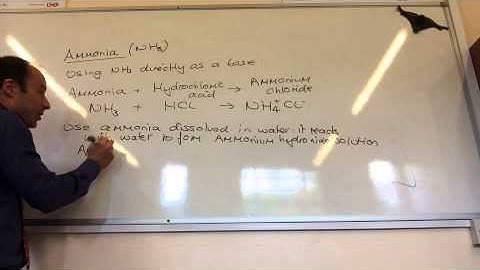 Ammonia (NH3)
Using NH3 directly as a base
Ammonia + Hydrochloric acid → Ammonium chloride
NH3 + HCl → NH4+ Cl-
Use ammonia dissolved in water it reacts
with water to form Ammonium hydroxide solution
A